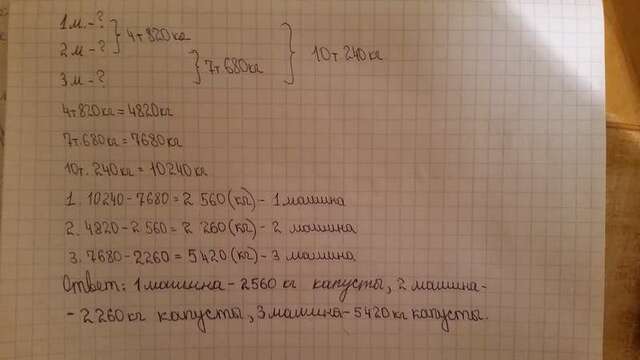 1 м. - ? } 4т 820кг
2 м - ? } 10т. 240кг
3 м - ? } 7т 680кг
4т820кг = 4820кг
7т.680кг = 7680кг
10т. 240кг = 10240кг
1. 10240 - 7680 = 2 560(кг) - 1 машина
2. 4820 - 2 560 = 2 260(кг) - 2 машина
3. 7680 - 2260 = 5420(кг) - 3 машина
Ответ: 1 машина - 2560 кг капусты, 2 машина -
- 2260кг капусты, 3 машина - 5420кг капусты.